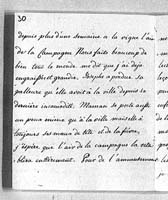 30
depuis plus d'une semaine a la vigne l'air
de la Campagne Nous fait beaucoup de
bien tout le monde me dit que j'ai deja
engraissé et grandie. Josephe a perdue sa
palleure qu'elle avoit à la ville depuis sa
derniere incomodité. Maman se porte aussi
un peu mieux qu'à la ville mais elle à
toujours ses maux de tête et de la fievre,
j'espère que l'air de la campagne la reta
blira entierement. Pour de l'amusement